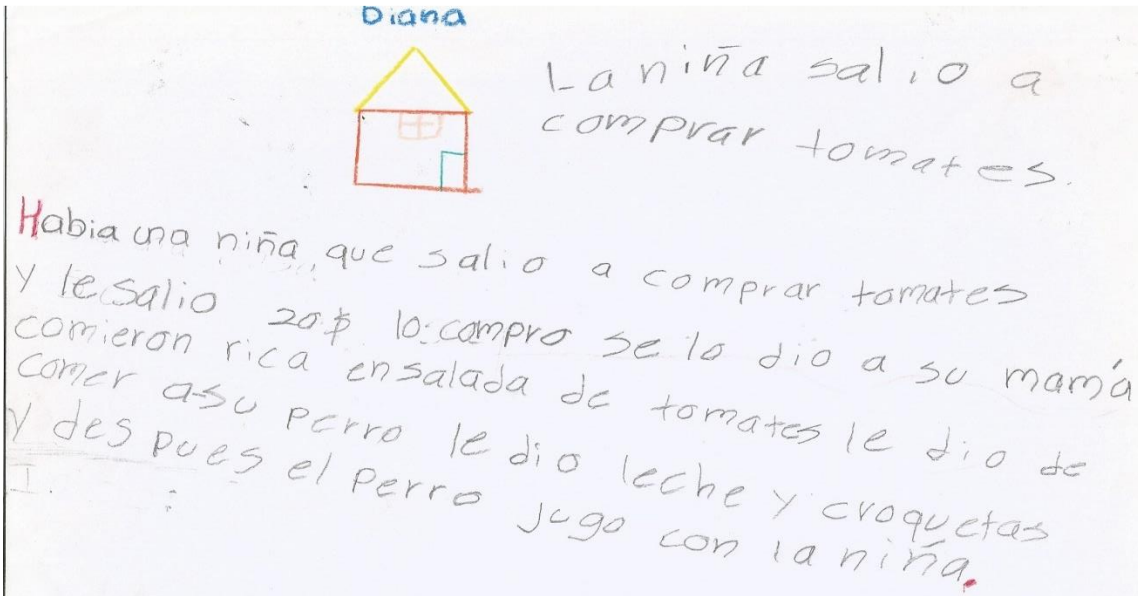 Diana
La niña salio a
comprar tomates.
Habia una niña, que salio a comprar tomates
y le salio 20$ lo compro se lo dio a su mamá
comieron rica ensalada de tomates le dio de
comer asu perro le dio leche y croquetas
y des pues el perro jugo con la niña.